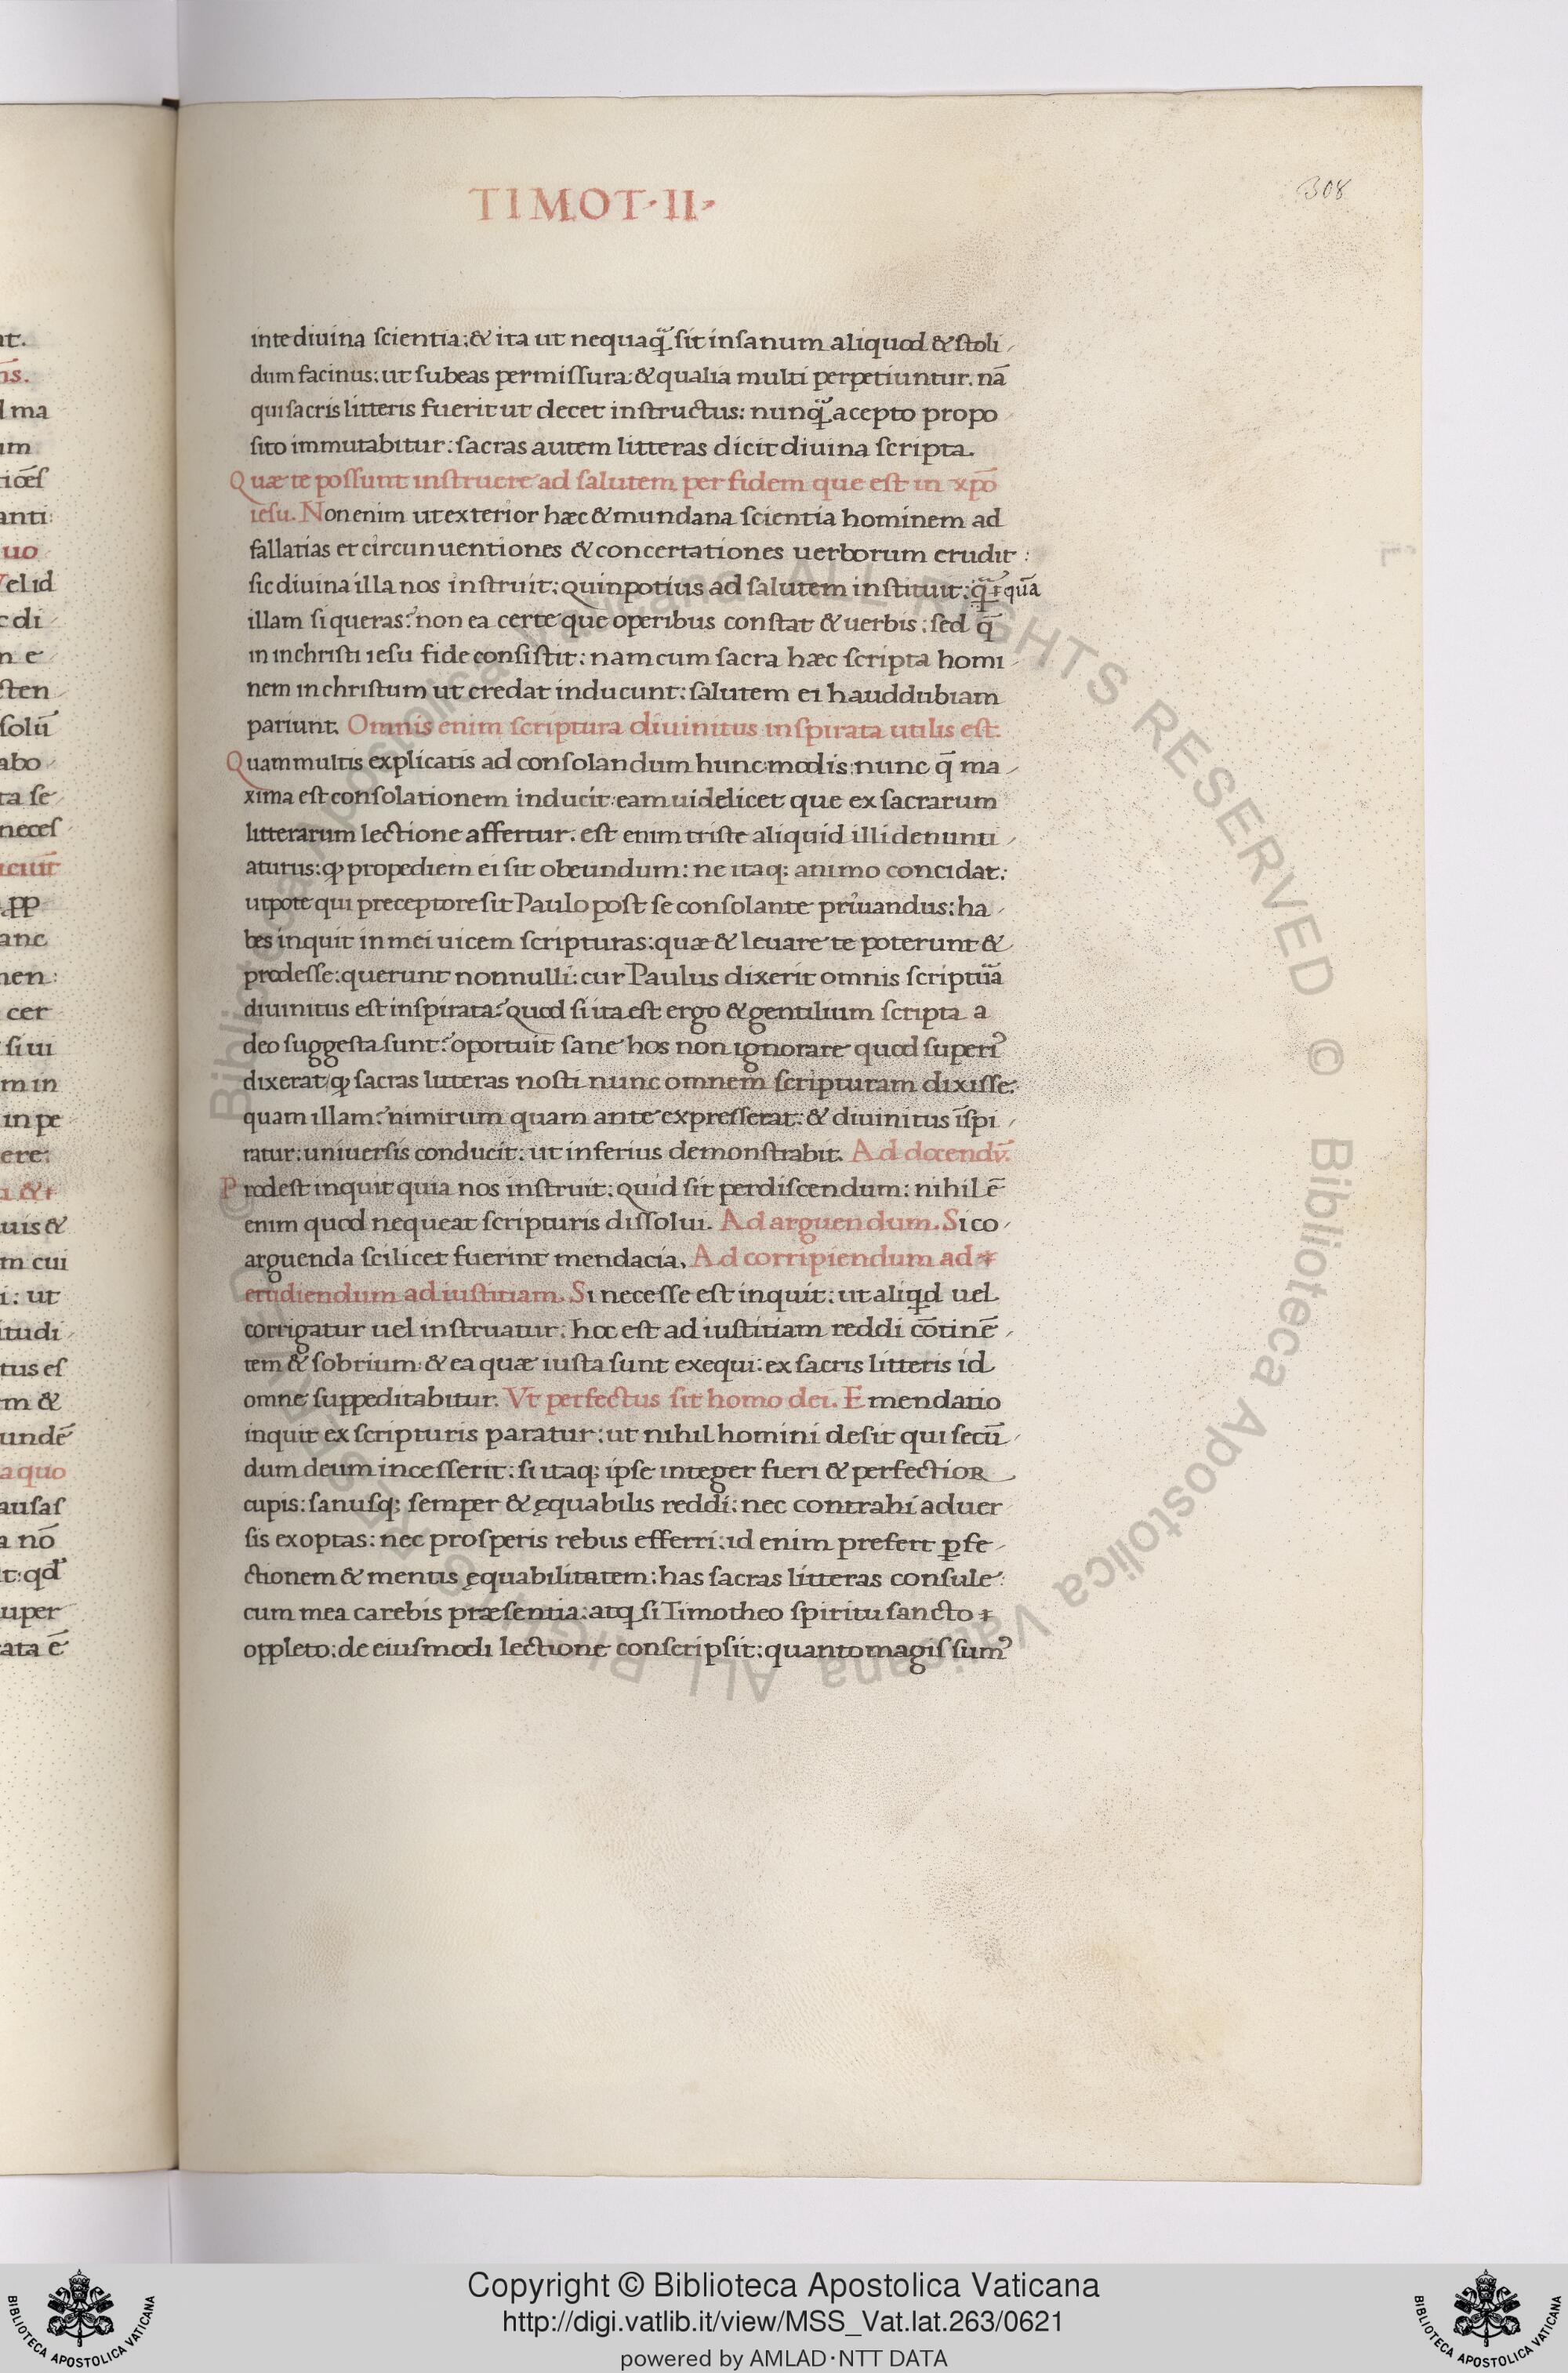 TIMOT·II·
308
inte diuina ſcientia:& ita ut nequaq̃ ſit inſanum aliquod & ſtoli
dum facinus: ut ſubeas permiſſura: & qualia multi perpetiuntur. nã
qui ſacris litteris fuerit ut decet inſtructus: nunq̃ acepto propo
ſito immutabitur: ſacras autem litteras dicit diuina ſcripta.
Quæ te poſſunt inſtruere ad ſalutem per fidem que eſt in xp̃o
ieſu. Non enim ut exterior hæc & mundana ſcientia hominem ad
fallatias et circunuentiones & concertationes uerborum erudit:
ſic diuina illa nos inſtruit: quinpotius ad ſalutem inſtituit:
illam ſi queras? non ea certe que operibus conſtat & uerbis: ſed q̃
in in chriſti ieſu fide conſiſtit: nam cum ſacra hæc ſcripta homi
nem in chriſtum ut credat inducunt: ſalutem ei hauddubiam
pariunt. Omnis enim ſcriptura diuinitus inſpirata utilis eſt.
Quam multis explicatis ad conſolandum hunc modis: nunc q̃ ma
xima eſt conſolationem inducit: eam uidelicet que ex ſacrarum
litterarum lectione affertur. eſt enim triſte aliquid illi denunti
aturus: ꝙ propediem ei ſit obeundum: ne itaq; animo concidat:
utpote qui preceptore ſit Paulo poſt ſe conſolante priuandus: ha
bes inquit in mei uicem ſcripturas: quæ & leuare te poterunt &
prodeſſe: querunt nonnulli: cur Paulus dixerit omnis ſcriptur̃a
diuinitus eſt inſpirata? quod ſi ita eſt ergo & gentilium ſcripta a
deo ſuggeſta ſunt? oportuit ſane hos non ignorare quod ſuperiꝰ
dixerat ꝙ ſacras litteras noſti nunc omnem ſcripturam dixiſſe:
quam illam? nimirum quam ante expreſſerat: & diuinitus ĩſpi
ratur: uniuerſis conducit: ut inferius demonſtrabit. Ad docendũ.
Prodeſt inquit quia nos inſtruit: quid ſit perdiſcendum: nihil ẽ
enim quod nequeat ſcripturis diſſolui. Ad arguendum. Si co
arguenda ſcilicet fuerint mendacia. Ad corripiendum ad
erudiendum ad iuſtitiam. Si neceſſe eſt inquit: ut aliqd uel
corrigatur uel inſtruatur: hoc eſt ad iuſtitiam reddi cõtinẽ
tem & ſobrium: & ea quæ iuſta ſunt exequi: ex ſacris litteris id
omne ſuppeditabitur. Vt perfectus ſit homo dei. Emendatio
inquit ex ſcripturis paratur: ut nihil homini deſit qui ſecũ
dum deum inceſſerit: ſi itaq; ipſe integer fieri & perfectior
cupis: ſanuſq; ſemper & ęquabilis reddi: nec contrahi aduer
ſis exoptas: nec proſperis rebus efferri: id enim prefert ꝑfe
ctionem & mentis ęquabilitatem: has ſacras litteras conſule:
cum mea carebis præſentia: atq ſi Timotheo ſpiritu ſancto
oppleto: de eiuſmodi lectione conſcripſit: quanto magiſ ſumꝰ
Copyright © Biblioteca Apostolica Vaticana
http://digi.vatlib.it/view/MSS_Vat.lat.263/0621
powered by AMLAD·NTT DATA